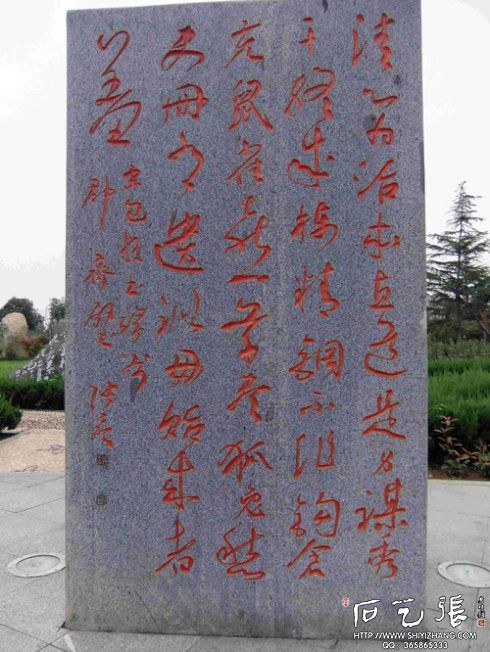 清心为治本直道是身謀秀
干終成棟精鋼不作鈎倉
充鼠雀喜草尽狐兔愁
史册有遗訓毋贻来者
羞
宋包拯书端州
郡齋壁
石艺張
HTTP://WWW.SHIYIZHANG.COM
QQ: 365865333